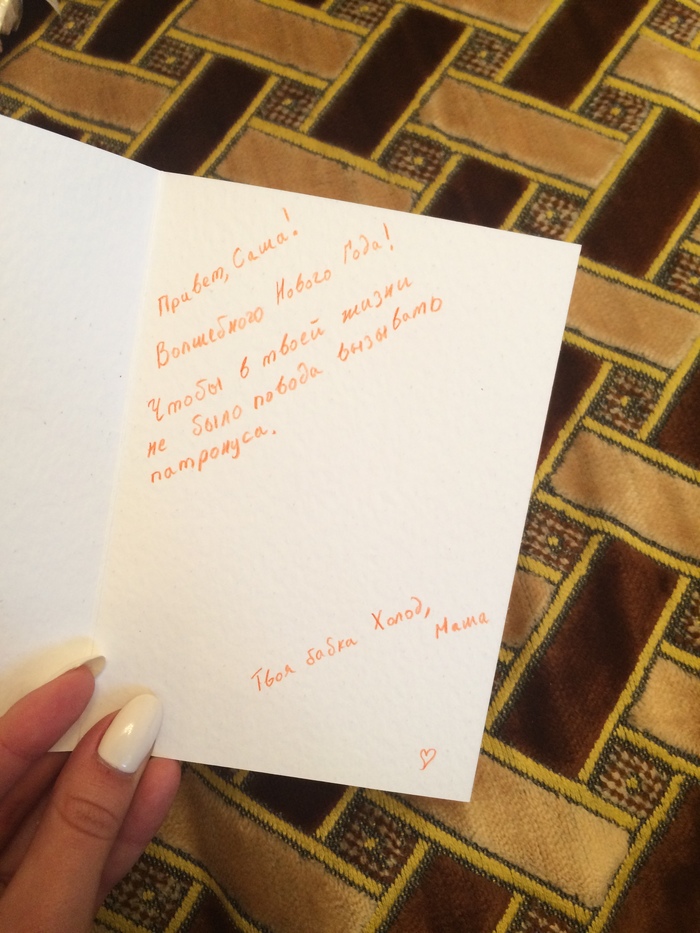 Привет, Саша!
Волшебного Нового Года!
Чтобы в твоей жизни
не было повода вызывать
патронуса.
Твоя бабка Холод,
Маша